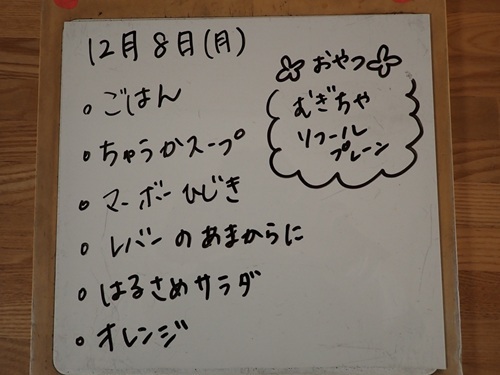 12月8日(月)
。ごはん
。ちゅうかスープ
。マーボーひじき
。レバーのあまからに
。はるさめサラダ
。オレンジ
おやつ
むぎちゃ
ソフール
プレーン